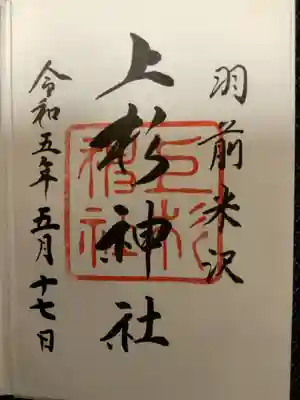 羽前米沢
上杉神社
上杉神社
令和五年五月十七日